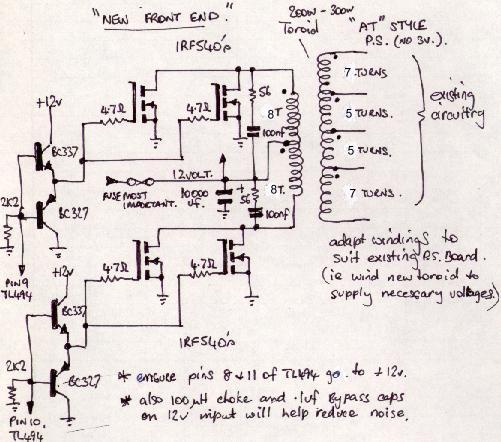 "NEW FRONT END."
200W - 300W
Toroid
"AT" STYLE
P.S. (NO 3V.)
IRF540's
7 TURNS
+12v
4.7Ω
4.7Ω
56
8T
100nf
5 TURNS.
existing
circuitry
BC337
12VOLT.
5 TURNS.
FUSE MOST
IMPORTANT.
10000
uf.
56
8T.
100nf
7 TURNS.
2K2
BC327
PIN 9
TL494
+12v
4.7Ω
4.7Ω
adapt windings to
suit existing P.S. Board.
(ie wind new toroid to
supply necessary voltages)
BC337
IRF540's
2K2
BC327
PIN 10.
TL494
* ensure pins 8 + 11 of TL494 go to +12v.
* also 100µH choke and .1uf Bypass caps
on 12v input will help reduce noise.